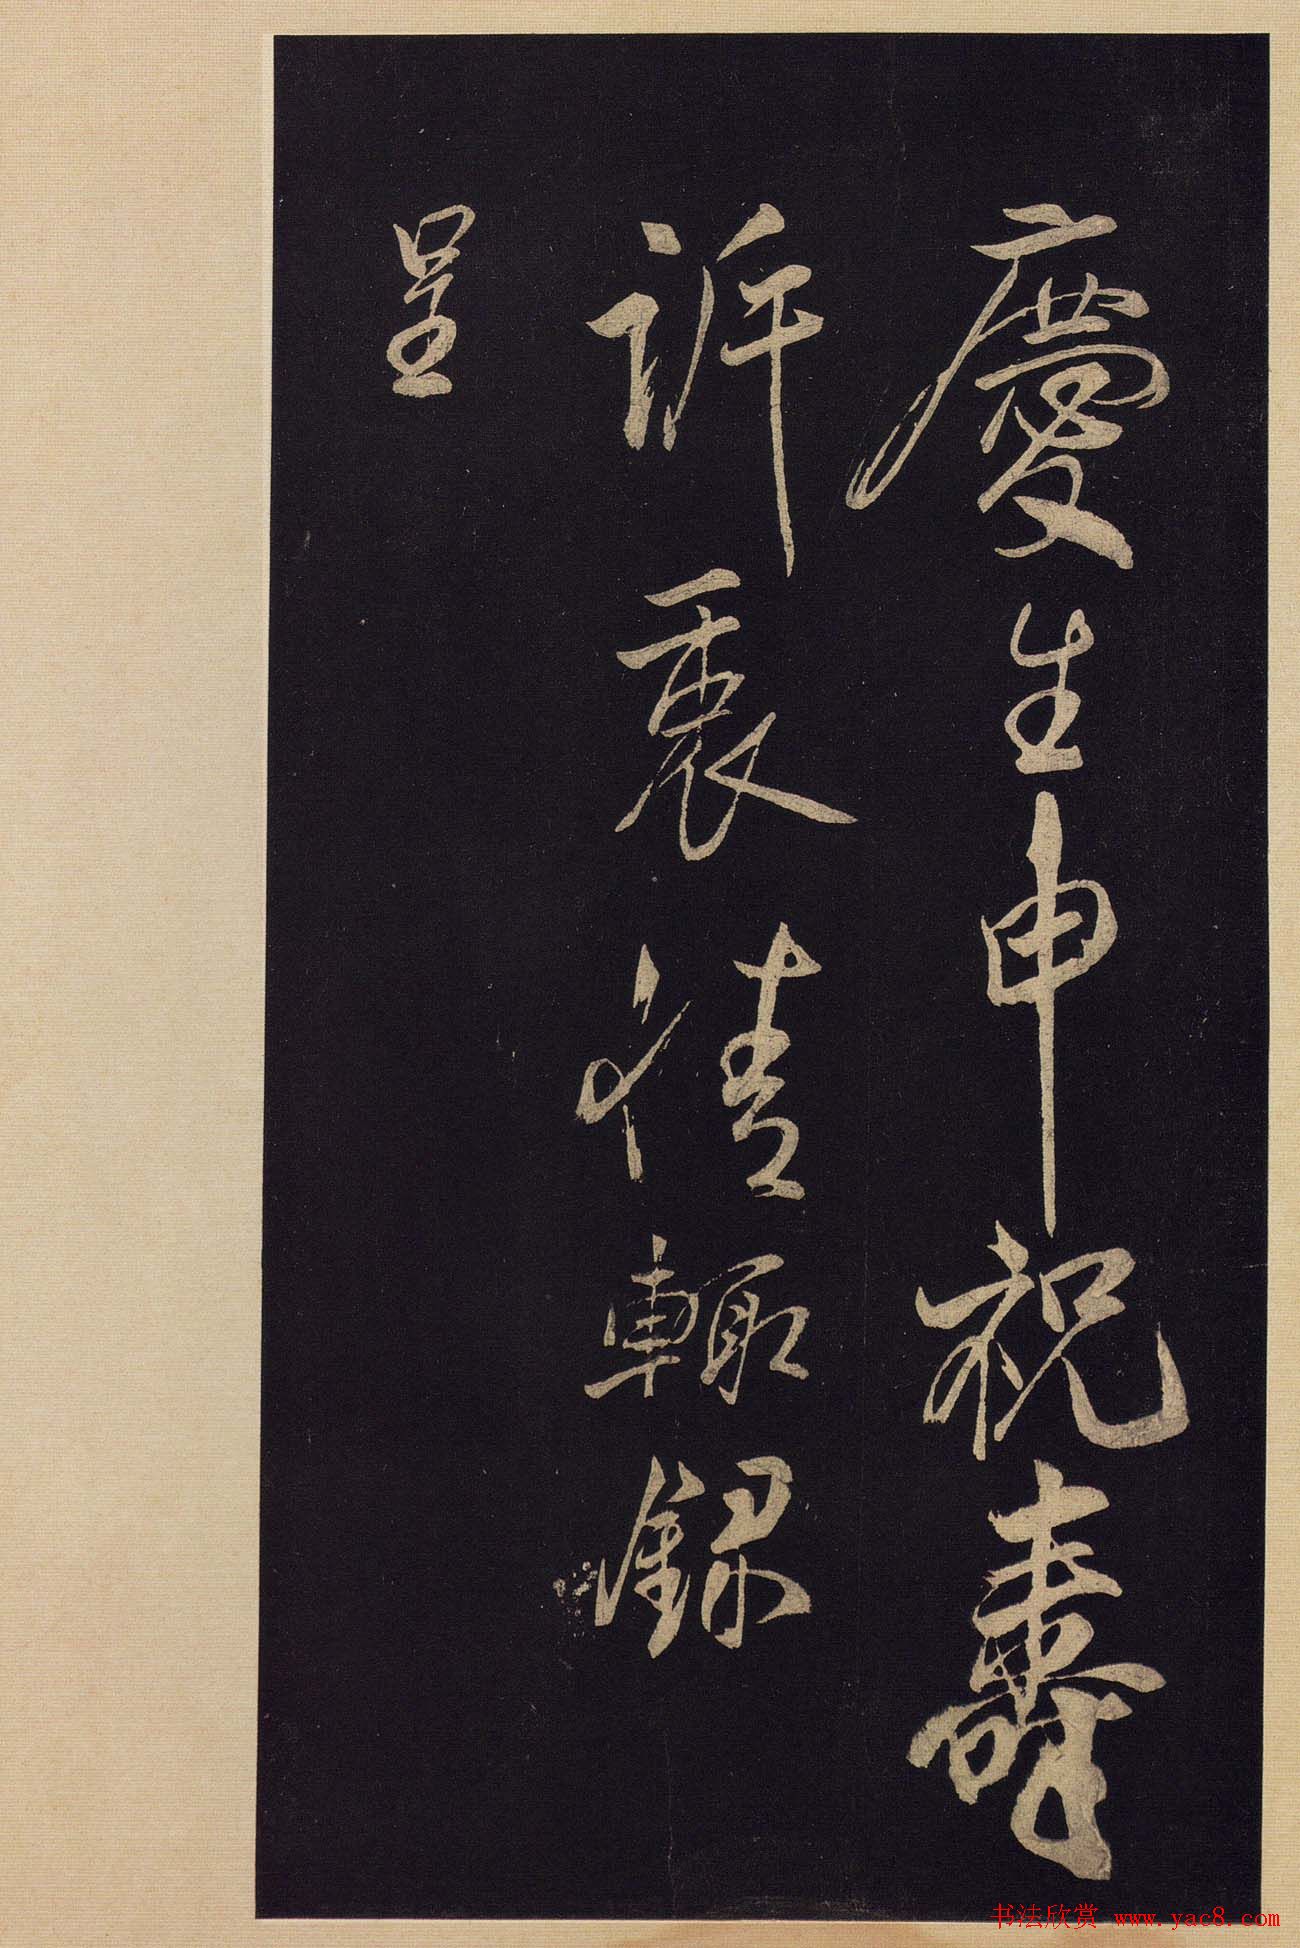 慶生申祝壽
訴衷情輙録
呈
书法欣赏 www.yac8.com